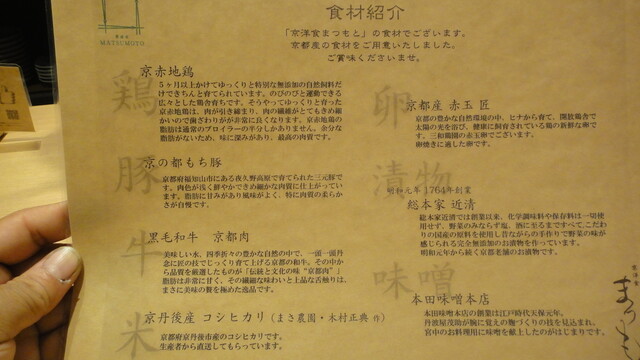 MATSUMOTO
食材紹介
「京洋食まつもと」の食材でございます。
京都産の食材をご用意いたしました。
ご賞味くださいませ。
鶏
京赤地鶏
5ヶ月以上かけてゆっくりと特別な無添加の自然飼料だ
けできちんと育てられています。のびのびと運動できる
広々とした鶏舎育ちです。そうやってゆっくりと育った
京赤地鶏は、肉が引き締まり、肉の繊維がとてもきめ細
かいので歯ざわりがが非常に良くなります。京赤地鶏の
脂肪は通常のブロイラーの半分しかありません。余分な
脂肪がないため、味に深みがあり、最高の肉質です。
豚
京の都もち豚
京都府福知山市にある夜久野高原で育てられた三元豚で
す。肉色が浅く鮮やかできめ細かな肉質に仕上がってい
ます。脂肪に甘みがあり風味がよく、特に肉質の柔らか
さが自慢です。
牛
黒毛和牛 京都肉
美味しい水、四季折々の豊かな自然の中で、一頭一頭丹
念に匠の技でじっくり育て上げる京都の和牛。その中か
ら品質を厳選したものが「伝統と文化の味“京都肉”」
脂肪は非常に甘く、その繊細な味わいと上品な舌触りは、
まさに美味の贅を極めた逸品です。
米
京丹後産 コシヒカリ（まさ農園・木村正典 作）
京都府京丹後市産のコシヒカリです。
生産者から直送してもらっています。
卵
京都産 赤玉 匠
京都の豊かな自然環境の中、ヒナから育て、開放鶏舎で
太陽の光を浴び、健康に飼育されている鶏の新鮮な卵で
す。三和鶏園の赤玉卵でございます。
卵焼きに適した卵です。
漬物
明和元年 1764年創業
総本家 近清
総本家近清では創業以来、化学調味料や保存料は一切使
用せず、野菜のみならず塩、酒に至るまですべて、こだわ
りの国産の原料を使用し昔ながらの手作りで野菜の味が
感じられる完全無添加のお漬物を作っています。
明和元年から続く京都老舗のお漬物です。
味噌
本田味噌本店
本田味噌本店の創業は江戸時代天保元年、
丹波屋茂助が腕に覚えの麹づくりの技を見込まれ、
宮中のお料理用に味噌を献上したのがはじまりです。
京洋食
まつもと